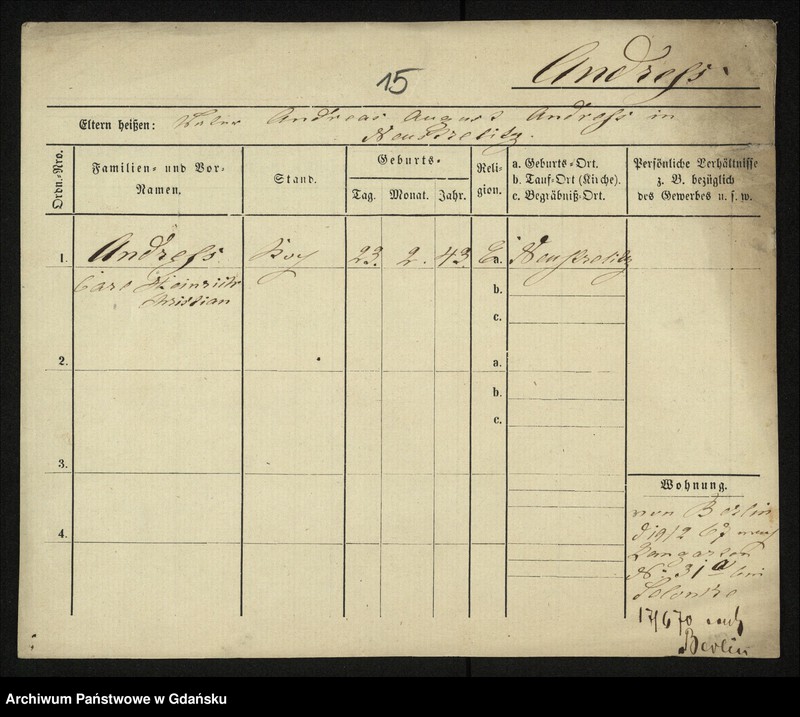 15
Andreß.
Eltern heißen: Vater Andreas August Andreß in
Neustrelitz.
Ordn.-Nro.
Familien- und Vor-
Namen.
Stand.
Geburts-
Tag. Monat. Jahr.
Reli-
gion.
a. Geburts-Ort.
b. Tauf-Ort (Kirche).
c. Begräbniß-Ort.
Persönliche Verhältnisse
z. B. bezüglich
des Gewerbes u. s. w.
1. Andreß 23. 2. 43. E. a. Neustrelitz
Carl Heinrich
Christian
b.
c.
2.
a.
b.
c.
3.
4.
Wohnung.
von Berlin
d 19/2 67 nach
Langarten
No 31 a bei
17/6 70 nach
Berlin
Archiwum Państwowe w Gdańsku